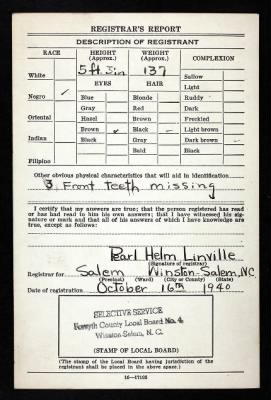 REGISTRAR'S REPORT
DESCRIPTION OF REGISTRANT
RACE HEIGHT (Approx.) WEIGHT (Approx.) COMPLEXION
5 ft. 5 in 137
White Sallow
EYES HAIR Light
Negro ✓ Blue Blonde Ruddy
Gray Red Dark
Oriental Hazel Brown Freckled
Brown ✓ Black Light brown
Indian Black Gray Dark brown
Bald Black
Filipino
Other obvious physical characteristics that will aid in identification
3 Front teeth missing
I certify that my answers are true; that the person registered has read
or has had read to him his own answers; that I have witnessed his sig-
nature or mark and that all of his answers of which I have knowledge are
true, except as follows:
Pearl Helm Linville
(Signature of registrar)
Registrar for Salem Winston-Salem, N.C.
(Precinct) (Ward) (City or County) (State)
Date of registration October 16th 1940
SELECTIVE SERVICE
Forsyth County Local Board No. 4
Winston-Salem, N. C.
(STAMP OF LOCAL BOARD)
(The stamp of the Local Board having jurisdiction of the
registrant shall be placed in the above space.)